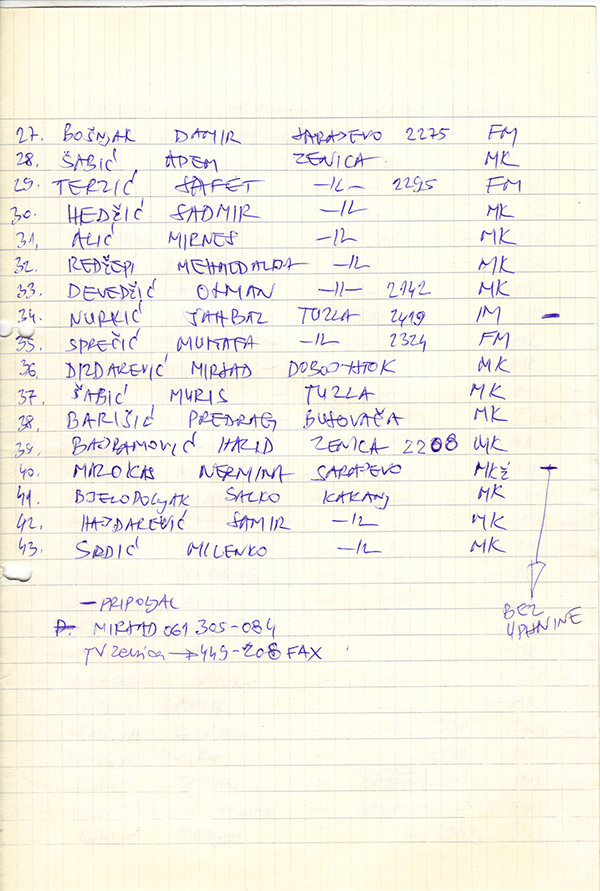 27. BOŠNJAK DAMIR SARAJEVO 2275 FM
28. ŠABIĆ ADEM ZENICA MK
29. TERZIĆ SAFET -||- 2295 FM
30. HEDŽIĆ SADMIR -||- MK
31. ALIĆ MIRNES -||- MK
32. REDŽEPI -||- MK
33. DEVEDŽIĆ OSMAN -||- 2142 MK
34. NURKIĆ TUZLA 2419 -
35. SPREČIĆ MUSTAFA -||- 2324 FM
36 MIRSAD DOBOJ-ISTOK MK
37. ŠABIĆ MURIS TUZLA MK
38. BARIŠIĆ PREDRAG BUSOVAČA MK
39. BAJRAMOVIĆ HARID ZENICA 2208 MK
40. NERMINA SARAJEVO MKŽ -
41. BJELOPOLJAK SALKO KAKANJ MK
42. HAJDAREVIĆ SAMIR -||- MK
43. SRDIĆ MILENKO -||- MK
BEZ
- PRIPOLJAC
MIRSAD 061 305-084
TV Zenica → 449-208 FAX